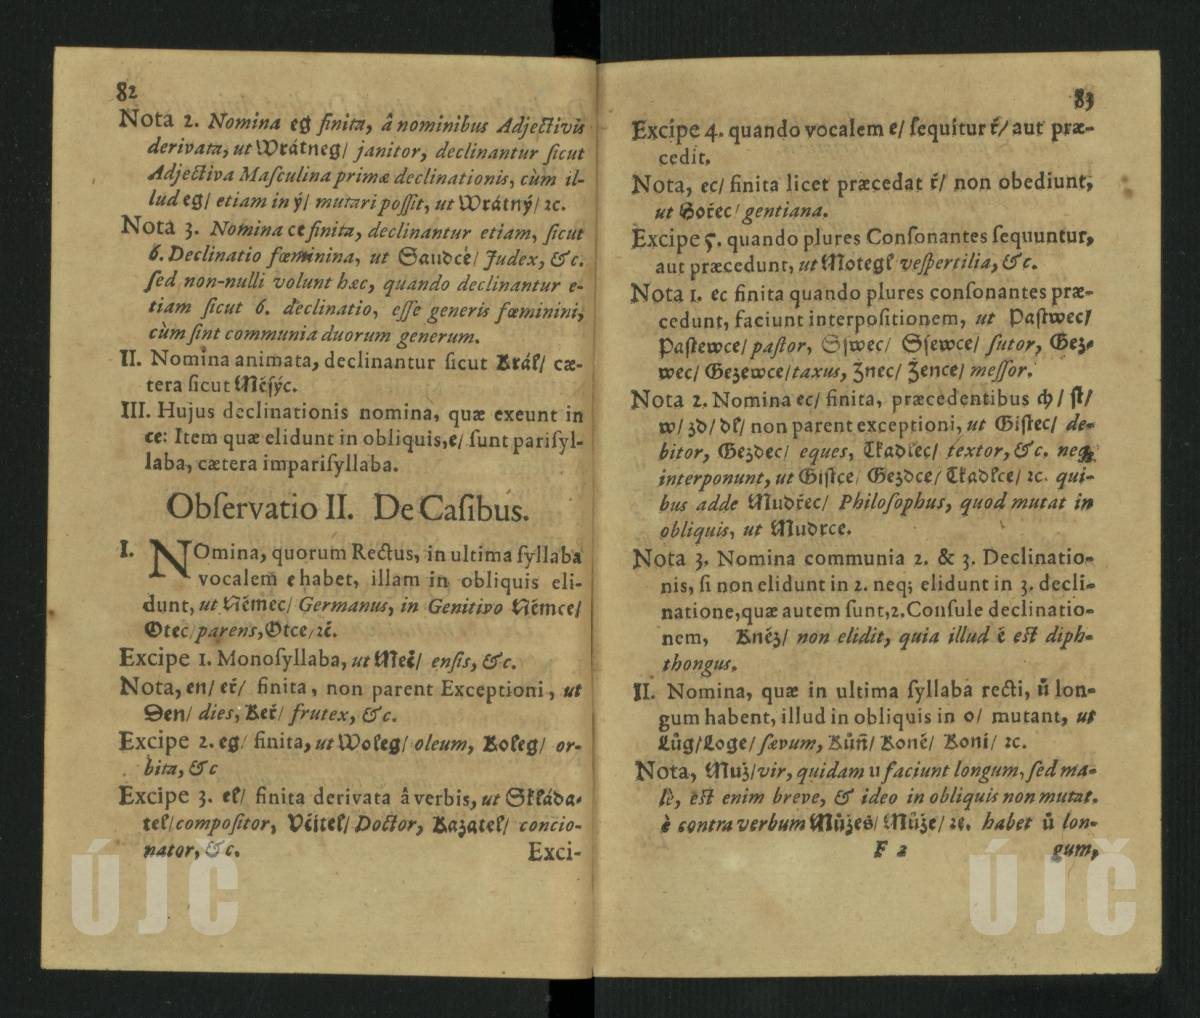 82
Nota 2. Nomina eg finita, â nominibus Adjectivis
derivata, ut Wrátneg/ janitor, declinantur ſicut
Adjectiva Maſculina primæ declinationis, cùm il-
lud eg/ etiam in ý/ mutari poſſit, ut Wrátný/ ꝛc.
Nota 3. Nomina ce finita, declinantur etiam, ſicut
6. Declinatio fœminina, ut Saudcė/ Judex, &c.
ſed non-nulli volunt hæc, quando declinantur e-
tiam ſicut 6. declinatio, eſſe generis fœminini,
cùm ſint communia duorum generum.
II. Nomina animata, declinantur ſicut Král/ cæ-
tera ſicut Měſýc.
III. Hujus declinationis nomina, quæ exeunt in
ce: Item quæ elidunt in obliquis, e/ ſunt pariſyl-
laba, cætera impariſyllaba.
Obſervatio II. De Caſibus.
I. NOmina, quorum Rectus, in ultima ſyllaba
vocalem e habet, illam in obliquis eli-
dunt, ut Němec/ Germanus, in Genitivo Němce/
Otec/ parens, Otce/ ꝛc.
Excipe 1. Monoſyllaba, ut Meč/ enſis, &c.
Nota, en/ eř/ finita, non parent Exceptioni, ut
Den/ dies, Keř/ frutex, &c.
Excipe 2. eg/ finita, ut Woleg/ oleum, Koleg/ or-
bita, &c
Excipe 3. el/ finita derivata â verbis, ut Skláda-
tel/ compoſitor, Včitel/ Doctor, Kazatel/ concio-
nator, &c.
Exci-
83
Excipe 4. quando vocalem e/ ſequitur ř/ aut præ-
cedit.
Nota, ec/ finita licet præcedat ř/ non obediunt,
ut Hořec/ gentiana.
Excipe 5. quando plures Conſonantes ſequuntur,
aut præcedunt, ut Motegl veſpertilia, &c.
Nota 1. ec finita quando plures conſonantes præ-
cedunt, faciunt interpoſitionem, ut Paſtwec/
Paſtewce/ paſtor, Sſwec/ Sſewce/ ſutor, Gez-
wec/ Gezewce/ taxus, Žnec/ Žence/ meſſor.
Nota 2. Nomina ec/ finita, præcedentibus ch/ ſt/
w/ zd/ dl/ non parent exceptioni, ut Giſtec/ de-
bitor, Gezdec/ eques, Tkadlec/ textor, &c. neq;
interponunt, ut Giſtce/ Gezdce/ Tkadlce/ ꝛc. qui-
bus adde Mudřec/ Philoſophus, quod mutat in
obliquis, ut Mudrce.
Nota 3. Nomina communia 2. & 3. Declinatio-
nis, ſi non elidunt in 2. neq; elidunt in 3. decli-
natione, quæ autem ſunt, 2. Conſule declinatio-
nem, Kněz/ non elidit, quia illud ě eſt diph-
thongus.
II. Nomina, quæ in ultima ſyllaba recti, ů lon-
gum habent, illud in obliquis in o/ mutant, ut
Lůg/ Loge/ ſævum, Kůň/ Koně/ Koni/ ꝛc.
Nota, Muž/ vir, quidam u faciunt longum, ſed ma-
lè, eſt enim breve, & ideo in obliquis non mutat.
è contra verbum Můžeš/ Může/ ꝛc. habet ů lon-
F 2
gum,
ÚJČ
ÚJČ